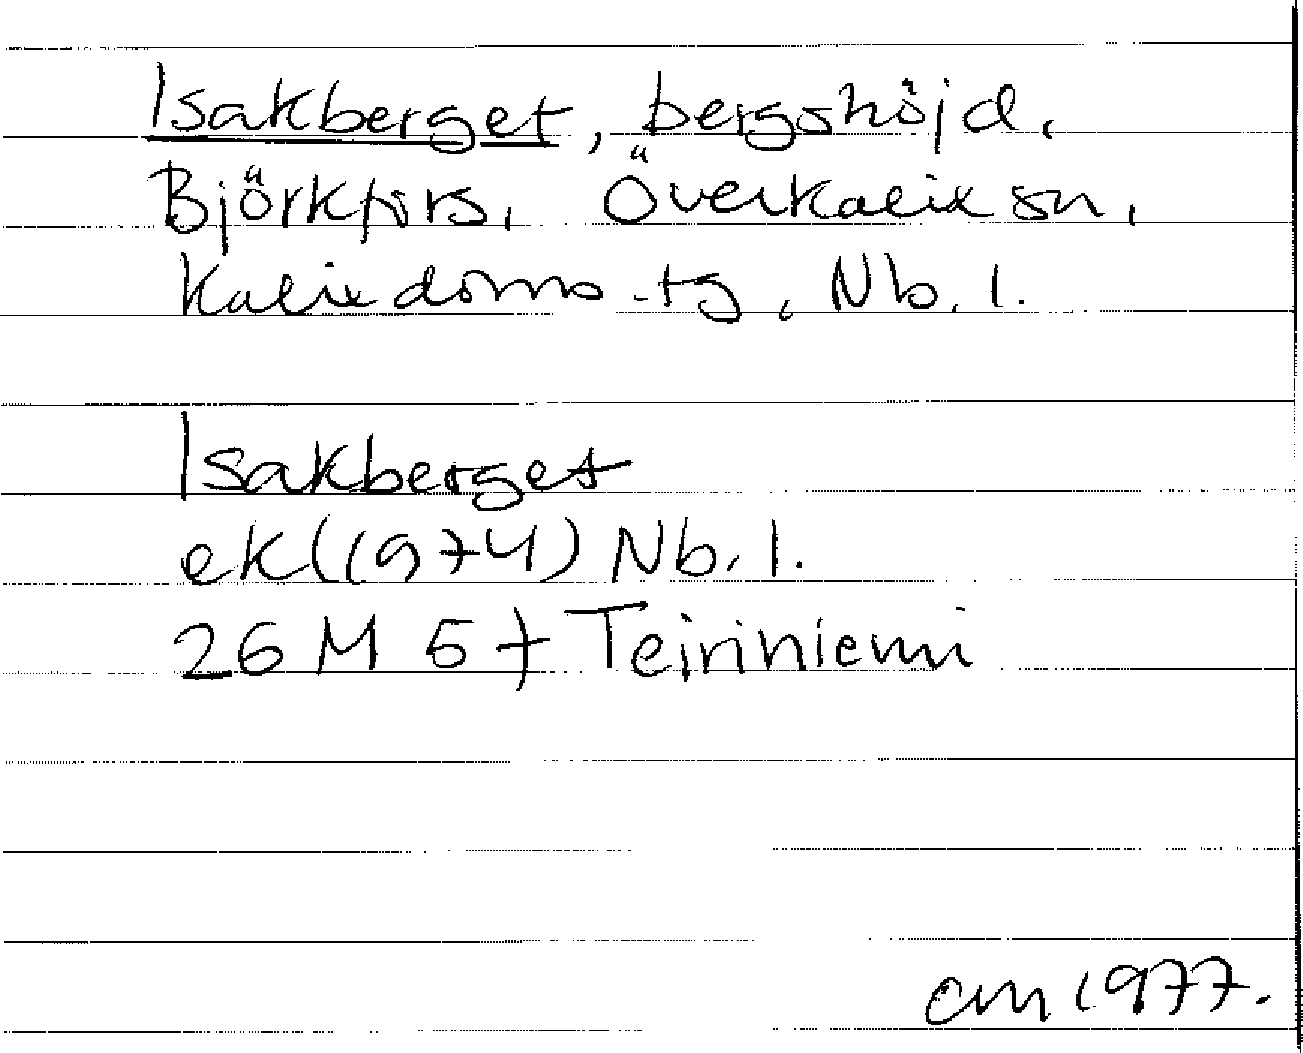 Isakberget, bergshöjd,
Björkfors, Överkalix sn,
Kalix doms.tg, Nb.l.
Isakberget
ek(1974) Nb.l.
26 M 5 f Teiriniemi
cm 1977.